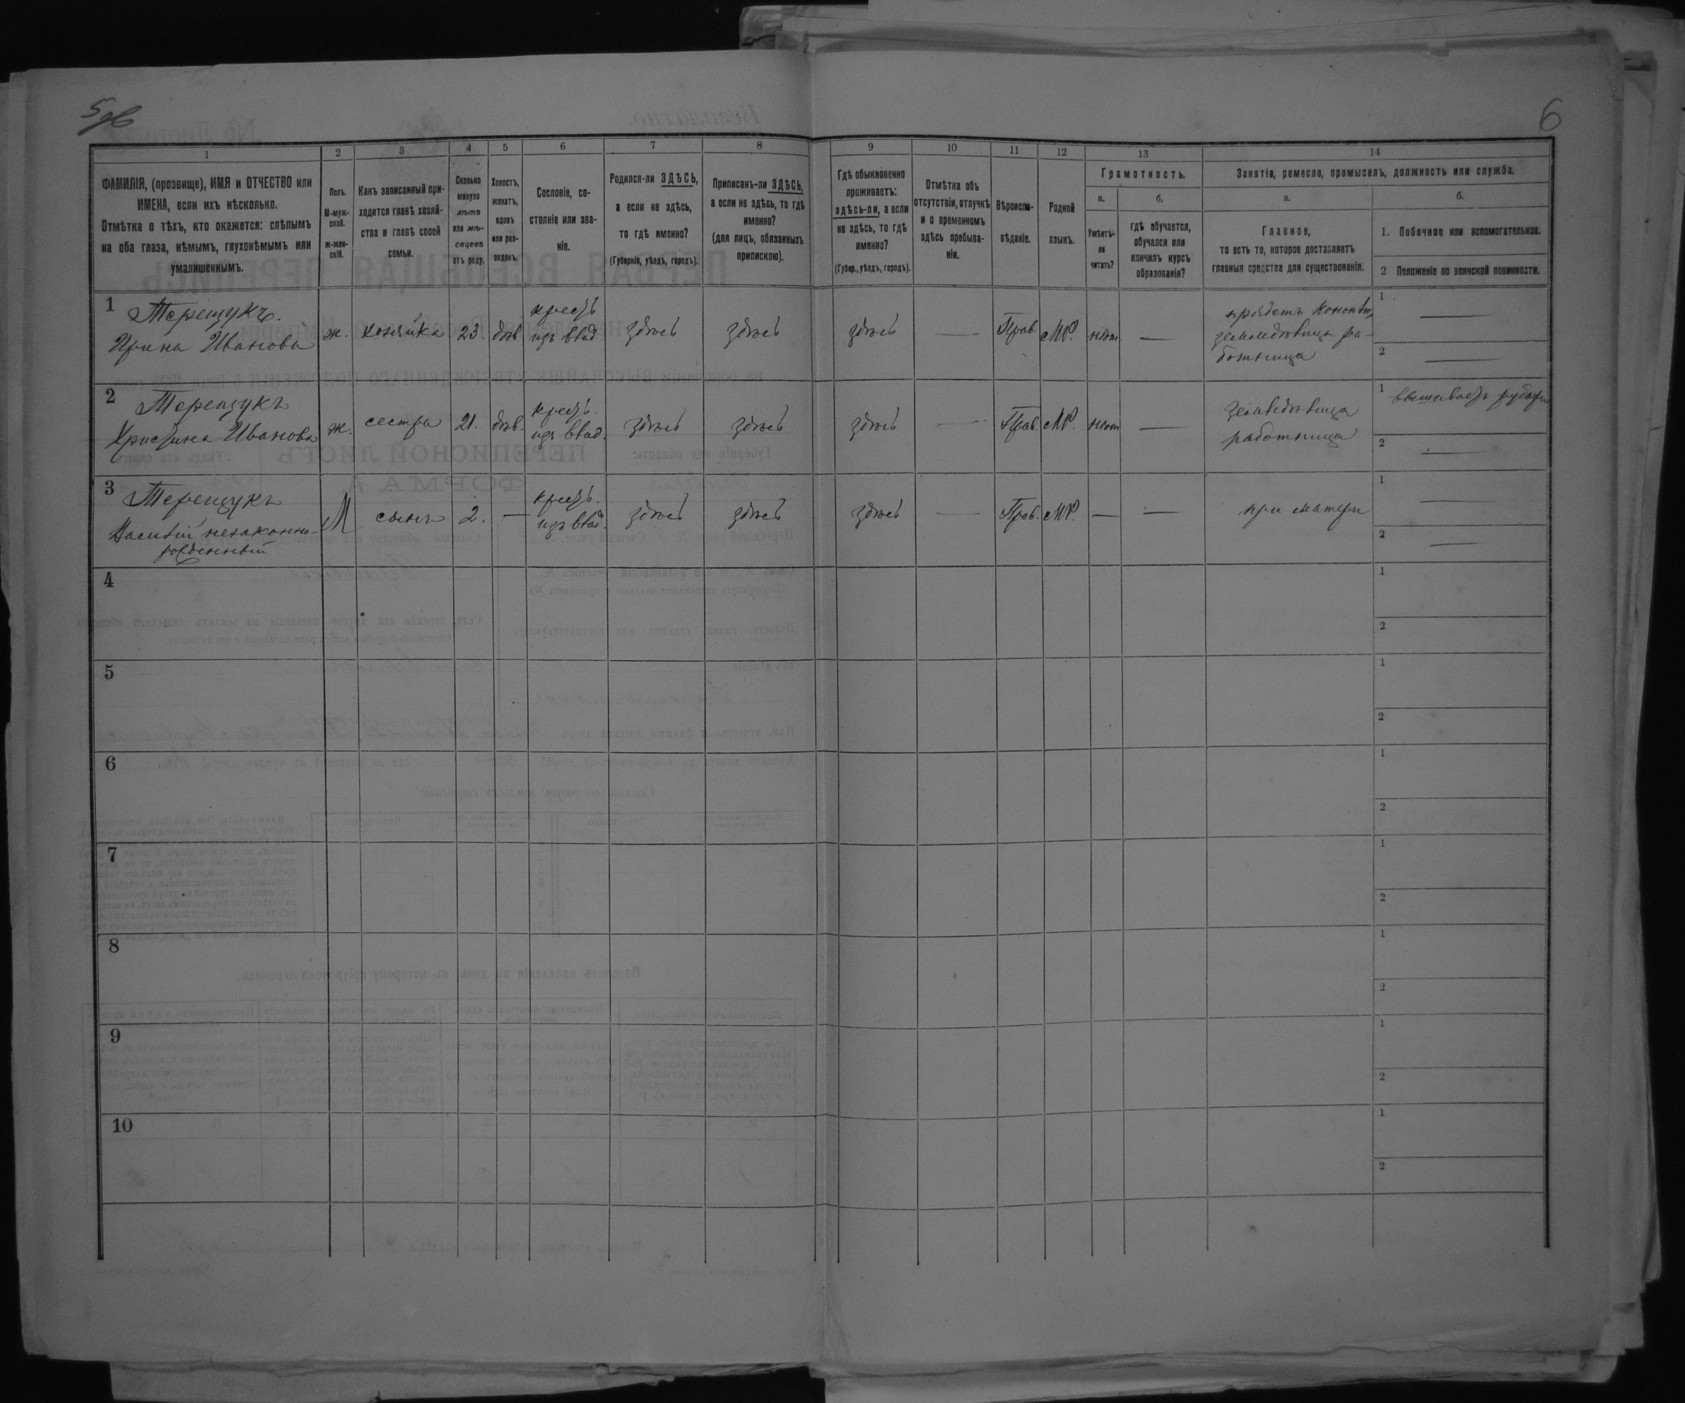 5об
6
1
2
3
4
5
6
7
8
9
10
11
12
13
14
ФАМИЛІЯ, (прозвище), ИМЯ и ОТЧЕСТВО или
ИМЕНА, если ихъ нѣсколько.
Отмѣтка о тѣхъ, кто окажется: слѣпымъ
на оба глаза, нѣмымъ, глухонѣмымъ или
умалишеннымъ.
Полъ.
М-муж-
ской.
ж-жен-
скій.
Какъ записанный при-
ходится главѣ хозяй-
ства и главѣ своей
семьи.
Сколько
минуло
лѣтъ
или мѣ-
сяцевъ
отъ роду.
Холостъ,
женатъ,
вдовъ
или раз-
веденъ.
Сословіе, со-
стояніе или зва-
ніе.
Родился-ли ЗДѢСЬ,
а если не здѣсь,
то гдѣ именно?
(Губернія, уѣздъ, городъ).
Приписанъ-ли ЗДѢСЬ,
а если не здѣсь, то гдѣ
именно?
(для лицъ, обязанныхъ
припискою).
Гдѣ обыкновенно
проживаетъ:
здѣсь-ли, а если
не здѣсь, то гдѣ
именно?
(Губер., уѣздъ, городъ).
Отмѣтка объ
отсутствіи, отлучкѣ
и о временномъ
здѣсь пребыва-
ніи.
Вѣроиспо-
вѣданіе.
Родной
языкъ.
Грамотность.
а.
Умѣетъ-
ли
читать?
б.
гдѣ обучается,
обучался или
кончилъ курсъ
образованія?
Занятіе, ремесло, промыселъ, должность или служба.
а.
Главное,
то есть то, которое доставляетъ
главныя средства для существованія.
б.
1. Побочное или вспомогательное.
2 Положеніе по воинской повинности.
1
Терещукъ.
Ирина Иванова
ж.
хозяйка
23.
дѣв
крест
изъ влад
здѣсь
здѣсь
здѣсь
—
Прав.
МР.
нѣт
—
прядетъ
земледѣлица ра-
ботница
1 —
2 —
2
Терещукъ
Христина Иванова
ж.
сестра
21.
дѣв.
крест.
изъ влад.
здѣсь
здѣсь
здѣсь
—
Прав.
МР.
нѣт
—
Земледѣлица
работница
1 вышиваетъ
2 —
3
Терещукъ
Василій незаконно-
рожденный
М
сынъ
2.
—
крест.
изъ влад.
здѣсь
здѣсь
здѣсь
—
Прав.
МР.
—
—
при матери
1 —
2 —
4
1
2
5
1
2
6
1
2
7
1
2
8
1
2
9
1
2
10
1
2